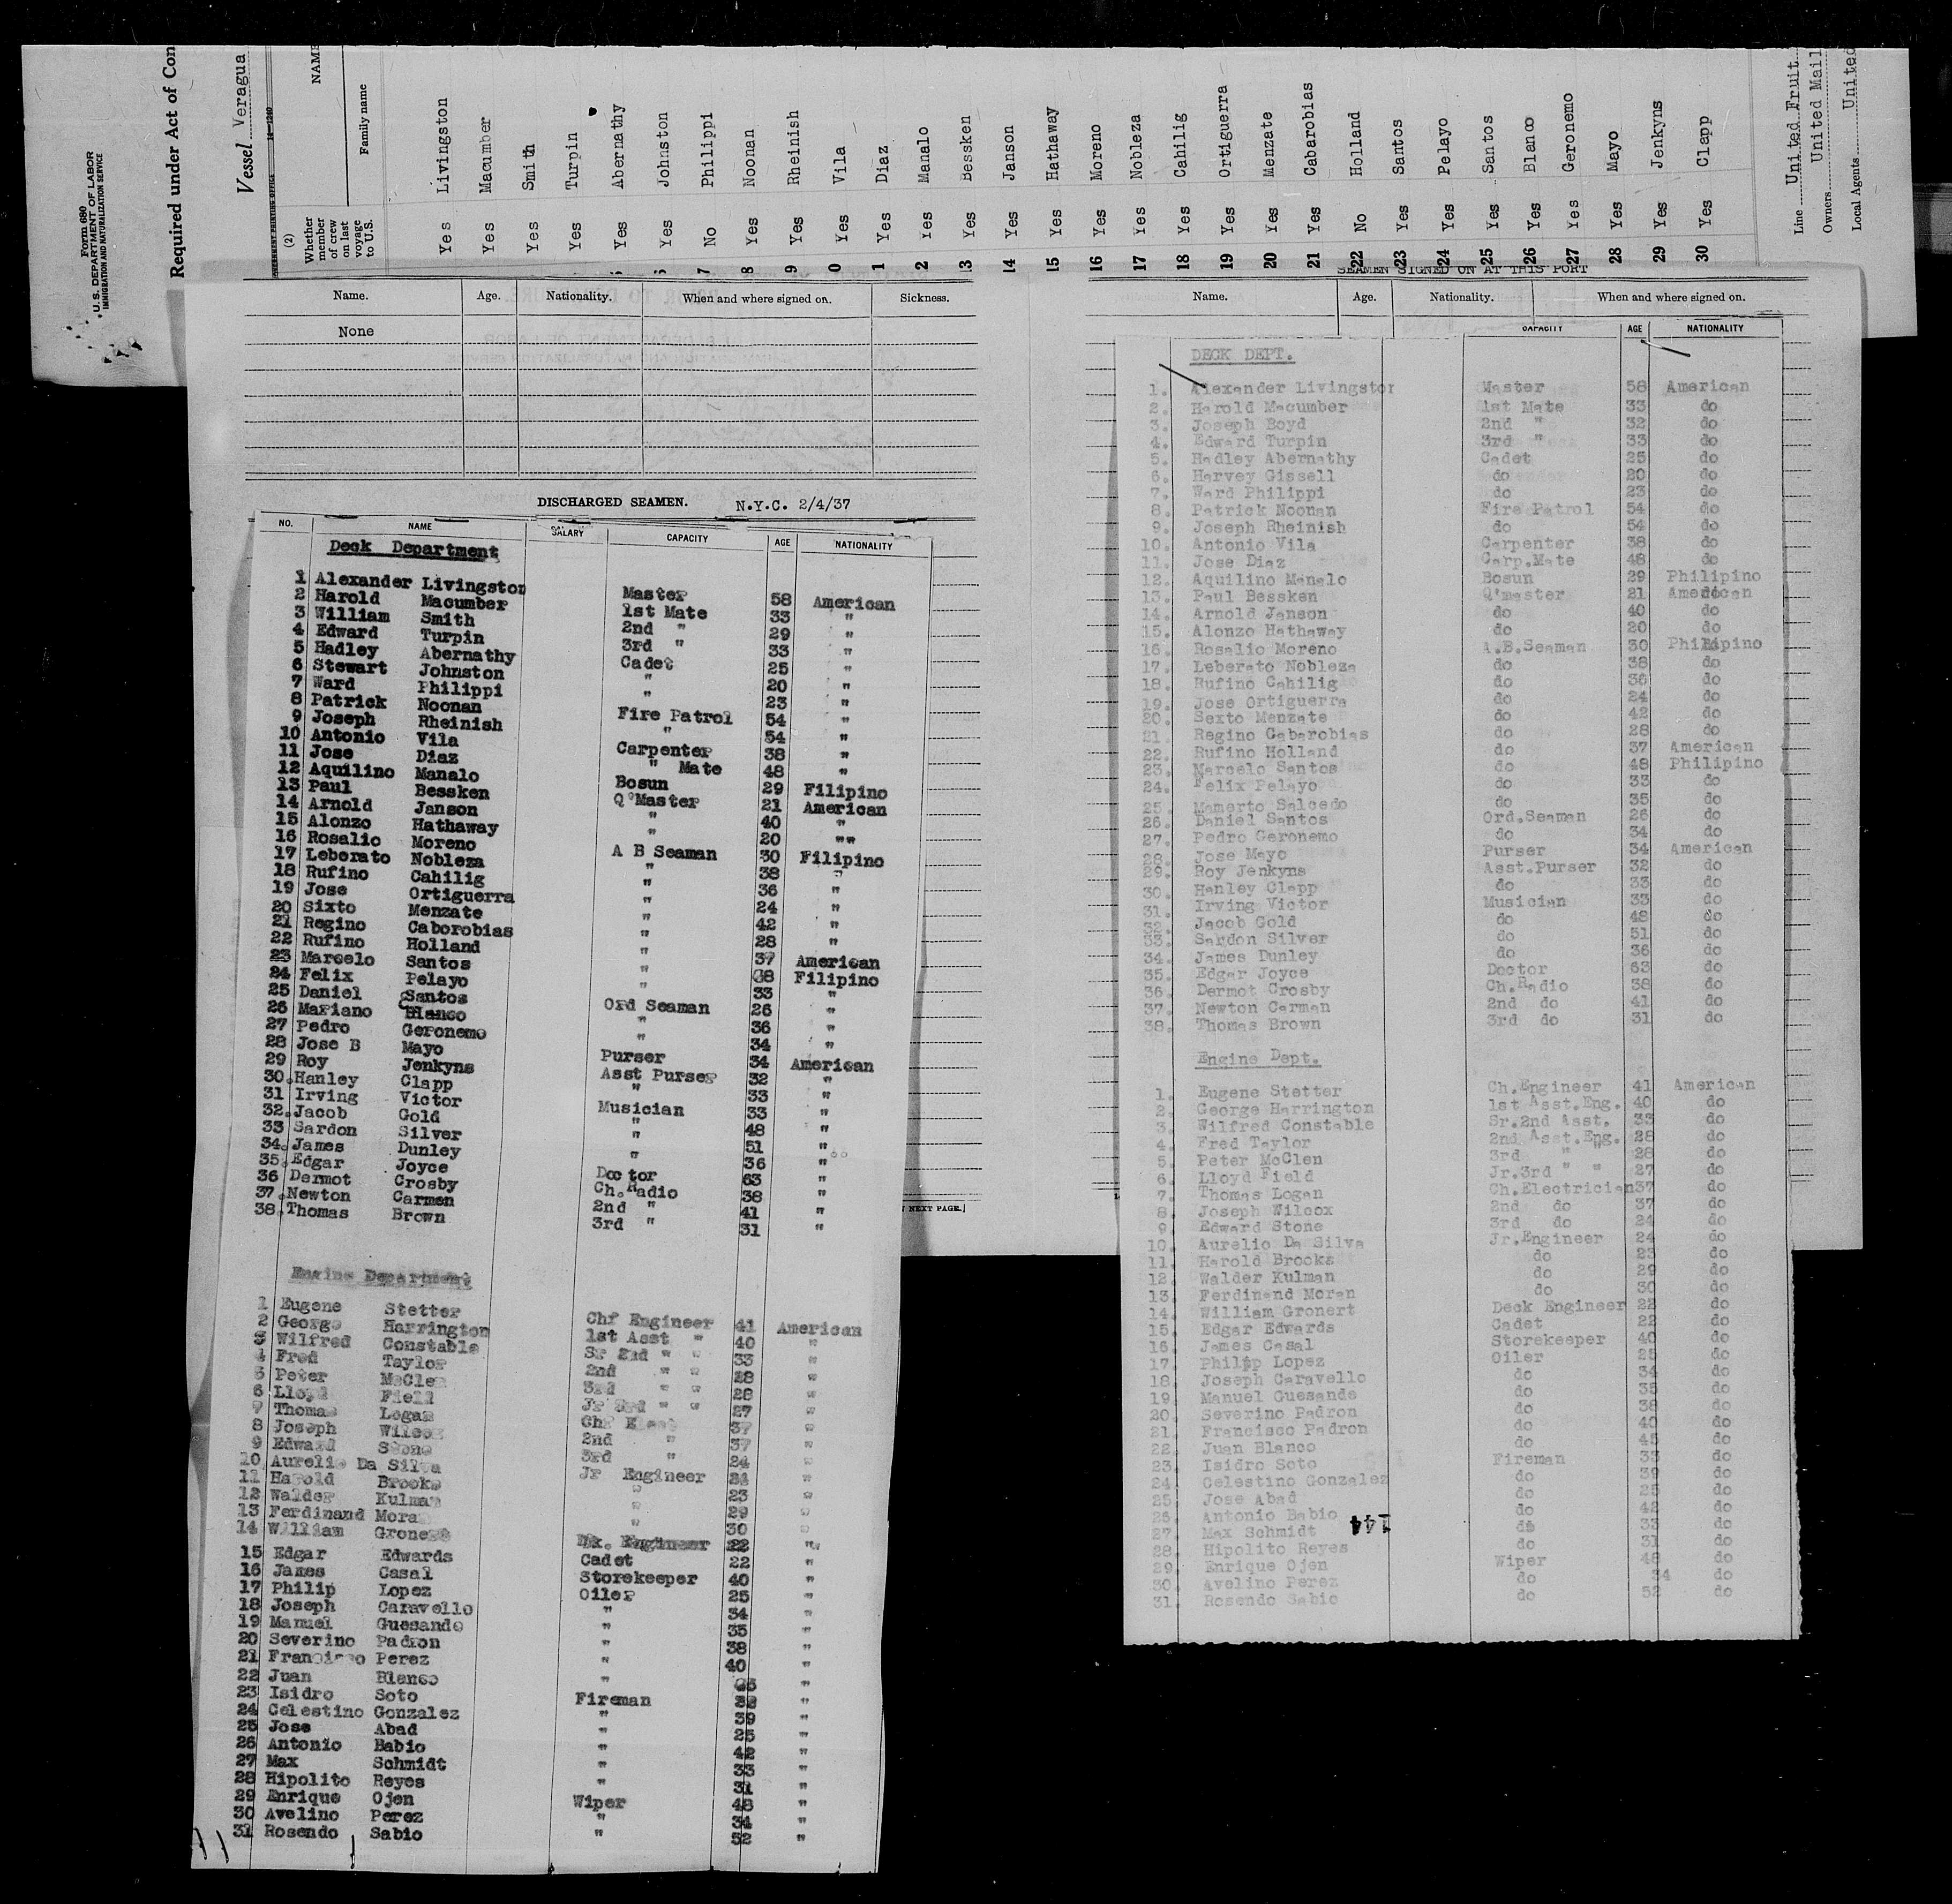 Form 680
U. S. DEPARTMENT OF LABOR
IMMIGRATION AND NATURALIZATION SERVICE
Required under Act of Con
Vessel Veragua
14—1240
(2)
Whether member of crew on last voyage to U.S.
NAME
Family name
Yes Livingston
Yes Macumber
Yes Smith
Yes Turpin
Yes Abernathy
Yes Johnston
7 No Philippi
8 Yes Noonan
9 Yes Rheinish
0 Yes Vila
1 Yes Diaz
2 Yes Manalo
13 Yes Bessken
14 Yes Janson
15 Yes Hathaway
16 Yes Moreno
17 Yes Nobleza
18 Yes Cahilig
19 Yes Ortiguerra
20 Yes Menzate
21 Yes Cabarobias
22 No Holland
23 Yes Santos
24 Yes Pelayo
25 Yes Santos
26 Yes Blanco
27 Yes Geronemo
28 Yes Mayo
29 Yes Jenkyns
30 Yes Clapp
Line United Fruit
Owners United Mail
Local Agents United
Name. Age. Nationality. When and where signed on. Sickness.
None
DISCHARGED SEAMEN. N.Y.C. 2/4/37
NO. NAME SALARY CAPACITY AGE NATIONALITY
Deck Department
1 Alexander Livingston Master 58 American
2 Harold Macumber 1st Mate 33 "
3 William Smith 2nd " 29 "
4 Edward Turpin 3rd " 33 "
5 Hadley Abernathy Cadet 25 "
6 Stewart Johnston " 20 "
7 Ward Philippi " 23 "
8 Patrick Noonan Fire Patrol 54 "
9 Joseph Rheinish " 54 "
10 Antonio Vila Carpenter 38 "
11 Jose Diaz " Mate 48 "
12 Aquilino Manalo Bosun 29 Filipino
13 Paul Bessken Q'Master 21 American
14 Arnold Janson " 40 "
15 Alonzo Hathaway " 20 ""
16 Rosalio Moreno A B Seaman 30 Filipino
17 Leberato Nobleza " 38 "
18 Rufino Cahilig " 36 "
19 Jose Ortiguerra " 24 "
20 Sixto Menzate " 42 "
21 Regino Caborobias " 28 "
22 Rufino Holland " 37 American
23 Marcelo Santos " 38 Filipino
24 Felix Pelayo " 33 "
25 Daniel Santos Ord Seaman 26 "
26 Mariano Blanco " 36 "
27 Pedro Geronemo " 34 "
28 Jose B Mayo Purser 34 American
29 Roy Jenkyns Asst Purser 32 "
30. Hanley Clapp " 33 "
31 Irving Victor Musician 33 "
32. Jacob Gold " 48 "
33 Sardon Silver " 51 "
34. James Dunley " 36 "
35. Edgar Joyce Doctor 63 "
36 Dermot Crosby Ch. Radio 38 "
37. Newton Carmen 2nd " 41 "
38. Thomas Brown 3rd " 31 "
NEXT PAGE.]
Engine Department
1 Eugene Stetter Chf Engineer 41 American
2 George Harrington 1st Asst " 40 "
3 Wilfred Constable Sr 2nd " " 33 "
4 Fred Taylor 2nd " " 28 "
5 Peter McClen 3rd " " 28 "
6 Lloyd Field Jr 3rd " " 27 "
7 Thomas Logan Chf Elect 37 "
8 Joseph Wilcox 2nd " 37 "
9 Edward Stone 3rd " 24 "
10 Aurelio Da Silva Jr Engineer 24 "
11 Harold Brooks " 23 "
12 Walder Kulman " 29 "
13 Ferdinand Moran " 30 "
14 William Gronert Dk. Engineer 22 "
15 Edgar Edwards Cadet 22 "
16 James Casal Storekeeper 40 "
17 Philip Lopez Oiler 25 "
18 Joseph Caravello " 34 "
19 Manuel Guesande " 35 "
20 Severino Padron " 38 "
21 Francisco Perez " 40 "
22 Juan Blanco " "
23 Isidro Soto Fireman "
24 Celestino Gonzalez " 39 "
25 Jose Abad " 25 "
26 Antonio Babio " 42 "
27 Max Schmidt " 33 "
28 Hipolito Reyes " 31 "
29 Enrique Ojen Wiper 48 "
30 Avelino Perez " 34 "
31 Rosendo Sabio " 52 "
SEAMEN SIGNED ON AT THIS PORT
Name. Age. Nationality. When and where signed on.
CAPACITY AGE NATIONALITY
DECK DEPT.
1. Alexander Livingston Master 58 American
2. Harold Macumber 1st Mate 33 do
3. Joseph Boyd 2nd " 32 do
4. Edward Turpin 3rd " 33 do
5. Hadley Abernathy Cadet 25 do
6. Harvey Gissell do 20 do
7. Ward Philippi do 23 do
8. Patrick Noonan Fire Patrol 54 do
9. Joseph Rheinish do 54 do
10. Antonio Vila Carpenter 38 do
11. Jose Diaz Carp.Mate 48 do
12. Aquilino Manalo Bosun 29 Philipino
13. Paul Bessken Q'master 21 American
14. Arnold Janson do 40 do
15. Alonzo Hathaway do 20 do
16. Rosalio Moreno A.B.Seaman 30 Philipino
17. Leberato Nobleza do 38 do
18. Rufino Cahilig do 36 do
19. Jose Ortiguerra do 24 do
20. Sexto Menzate do 42 do
21. Regino Cabarobias do 28 do
22. Rufino Holland do 37 American
23. Marcelo Santos do 48 Philipino
24. Felix Pelayo do 33 do
25. Mamerto Salcedo do 35 do
26. Daniel Santos Ord.Seaman 26 do
27. Pedro Geronemo do 34 do
28. Jose Mayo Purser 34 American
29. Roy Jenkyns Asst.Purser 32 do
30. Hanley Clapp do 33 do
31. Irving Victor Musician 33 do
32. Jacob Gold do 48 do
33. Sardon Silver do 51 do
34. James Dunley do 36 do
35. Edgar Joyce Doctor 63 do
36. Dermot Crosby Ch.Radio 38 do
37. Newton Carman 2nd do 41 do
38. Thomas Brown 3rd do 31 do
Engine Dept.
1. Eugene Stetter Ch.Engineer 41 American
2. George Harrington 1st Asst.Eng. 40 do
3. Wilfred Constable Sr.2nd Asst. 33 do
4. Fred Taylor 2nd Asst.Eng. 28 do
5. Peter McClen 3rd " " 28 do
6. Lloyd Field Jr.3rd " " 27 do
7. Thomas Logan Ch.Electrician 37 do
8. Joseph Wilcox 2nd do 37 do
9. Edward Stone 3rd do 24 do
10. Aurelio Da Silva Jr.Engineer 24 do
11. Harold Brooks do 23 do
12. Walder Kulman do 29 do
13. Ferdinand Moran do 30 do
14. William Gronert Deck Engineer 22 do
15. Edgar Edwards Cadet 22 do
16. James Casal Storekeeper 40 do
17. Philip Lopez Oiler 25 do
18. Joseph Caravello do 34 do
19. Manuel Guesande do 35 do
20. Severino Padron do 38 do
21. Francisco Padron do 40 do
22. Juan Blanco do 45 do
23. Isidro Soto Fireman 33 do
24. Celestino Gonzalez do 39 do
25 Jose Abad do 25 do
26. Antonio Babio do 42 do
27. Max Schmidt do 33 do
28. Hipolito Reyes do 31 do
29. Enrique Ojen Wiper 48 do
30. Avelino Perez do 34 do
31. Rosendo Sabio do 52 do
144